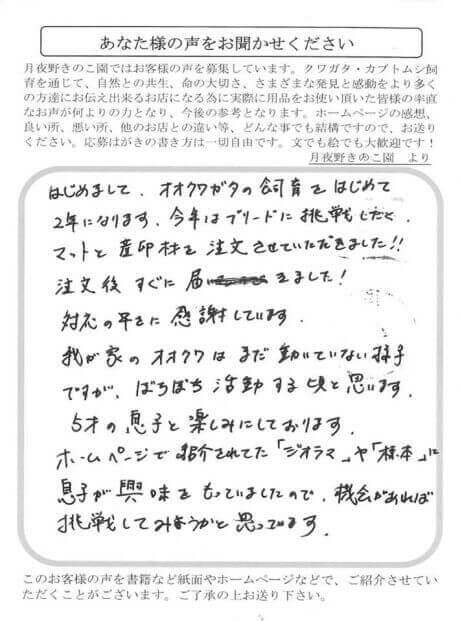 あなた様の声をお聞かせください
月夜野きのこ園ではお客様の声を募集しています。クワガタ・カブトムシ飼
育を通じて、自然との共生、命の大切さ、さまざまな発見と感動をより多く
の方達にお伝え出来るお店になる為に実際に用品をお使い頂いた皆様の率直
なお声が何よりの力となり、今後の参考となります。ホームページの感想、
良い所、悪い所、他のお店との違い等、どんな事でも結構ですので、お送り
ください。応募はがきの書き方は一切自由です。文でも絵でも大歓迎です！
月夜野きのこ園 より
はじめまして、オオクワガタの飼育をはじめて
2年になります。今年はブリードに挑戦したく、
マットと産卵材を注文させていただきました!!
注文後すぐに届きました！
対応の早さに感謝しています。
我が家のオオクワはまだ動いていない様子
ですが、ぼちぼち活動する頃と思います。
5才の息子と楽しみにしております。
ホームページで紹介されてた「ジオラマ」や「標本」に
息子が興味をもっていましたので、機会があれば
挑戦してみようかと思ってます。
このお客様の声を書籍など紙面やホームページなどで、ご紹介させてい
ただくことがございます。ご了承の上お送り下さい。